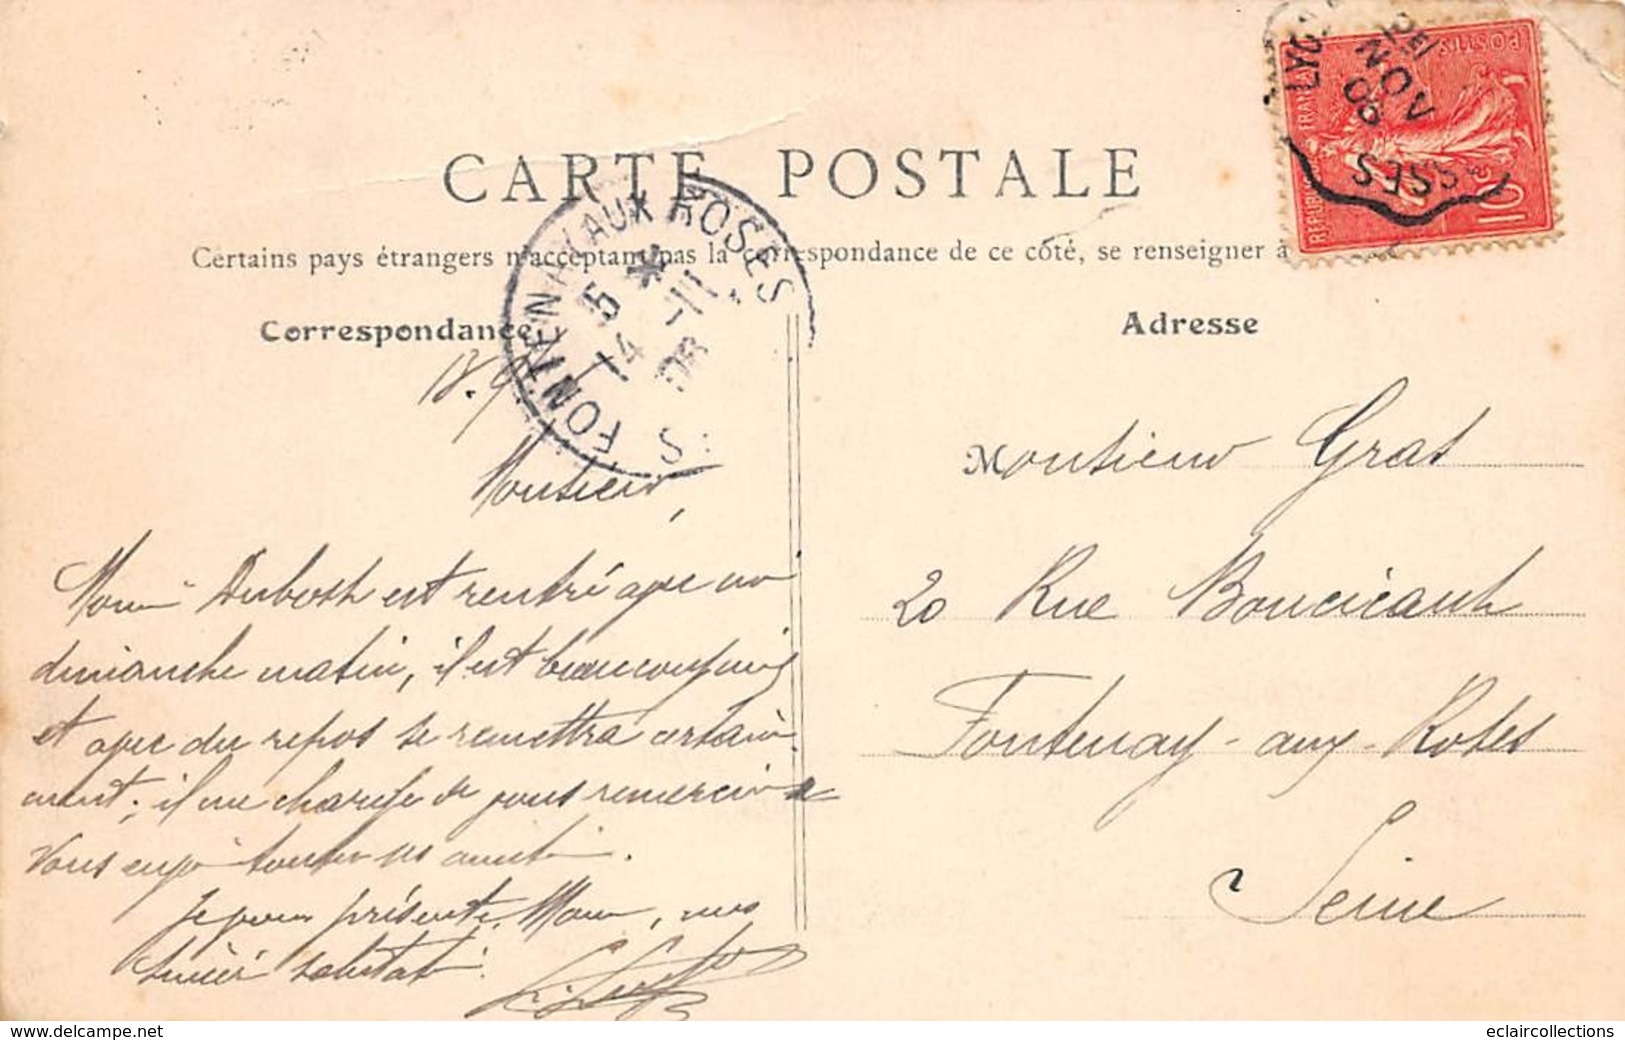 CARTE POSTALE
Certains pays étrangers n'acceptant pas la correspondance de ce côté, se renseigner à
Correspondance
Adresse
FONTENAY AUX ROSES
15 *
14 -11
06
S
POSTES
10c
Monsieur,
Mon Dubost est rentré avec moi
dimanche matin, il est beaucoup mieux
et avec du repos se remettra certaine
ment; il me charge de vous remercier
Je vous présente, Mon, mes
salutat
Monsieur Gras
20 Rue Boucicaut
Fontenay-aux-Roses
Seine
www.delcampe.net
eclaircollections